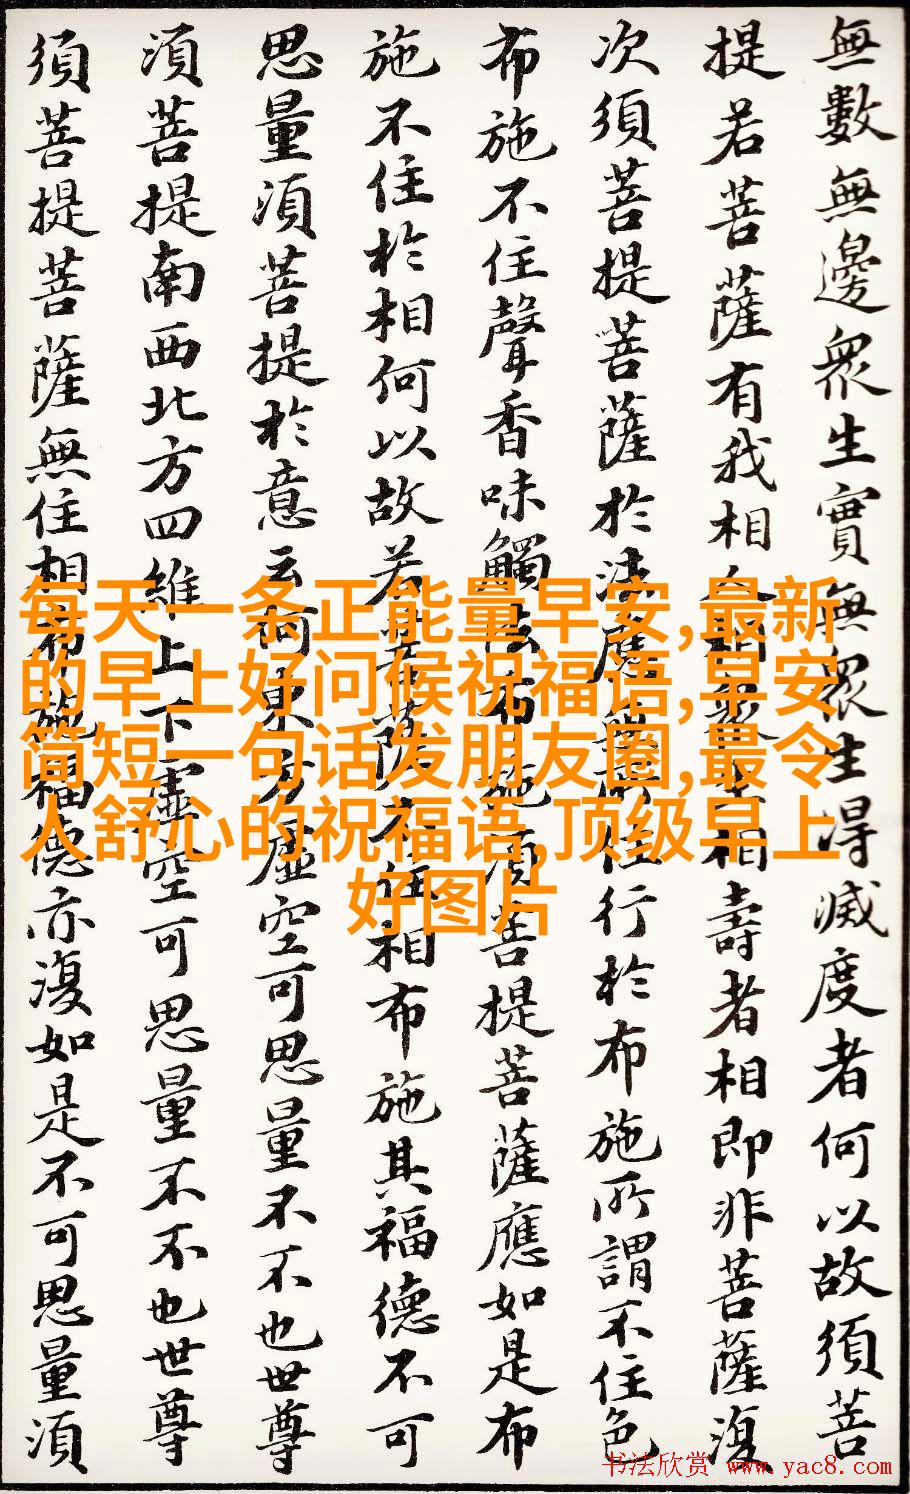 無數無邊眾生實無眾生得滅度者何以故須菩
提若菩薩有我相人相眾生相壽者相即非菩薩復
次須菩提菩薩於法應無所住行於布施所謂不住色
布施不住聲香味觸法布施須菩提菩薩應如是布
施不住於相何以故若菩薩不住相布施其福德不可
思量須菩提於意云何東方虛空可思量不不也世尊
須菩提南西北方四維上下虛空可思量不不也世尊
須菩提菩薩無住相布施福德亦復如是不可思量須
每天一条正能量早安,最新
的早上好问候祝福语,早安
简短一句话发朋友圈,最令
人舒心的祝福语,顶级早上
好图片
书法欣赏 www.yac8.com